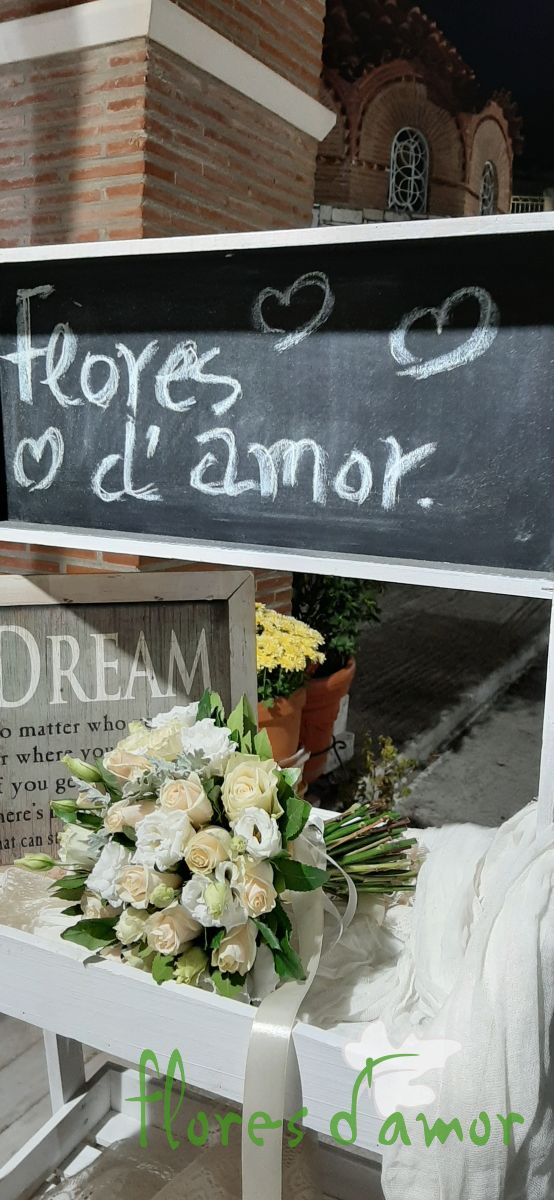 Flores
d'amor.
DREAM
o matter who
r where you
f you ge
here's
hat can s
flores d'amor